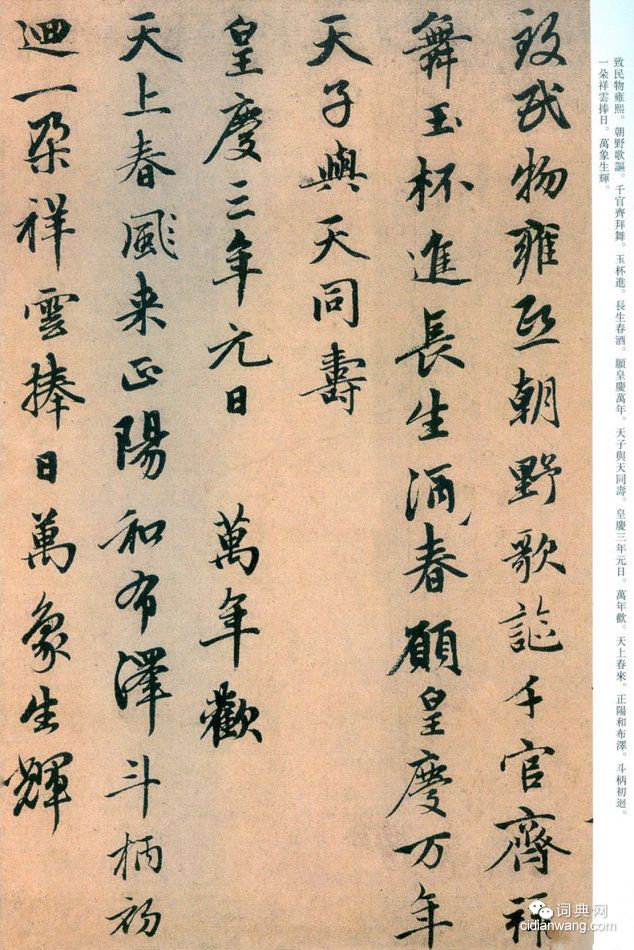 致民物雍熙。朝野歌謳。千官齊拜舞。玉杯進。長生春酒。願皇慶萬年。天子與天同壽。皇慶三年元日。萬年歡。天上春來。正陽和布澤。斗柄初迴。
一朵祥雲捧日。萬象生輝。
致民物雍熙朝野歌謳千官齊拜
舞玉杯進長生酒春願皇慶万年
天子與天同壽
皇慶三年元日 萬年歡
天上春風来正陽和布澤斗柄初
迴一朵祥雲捧日萬象生輝
词典网
cidianwang.com